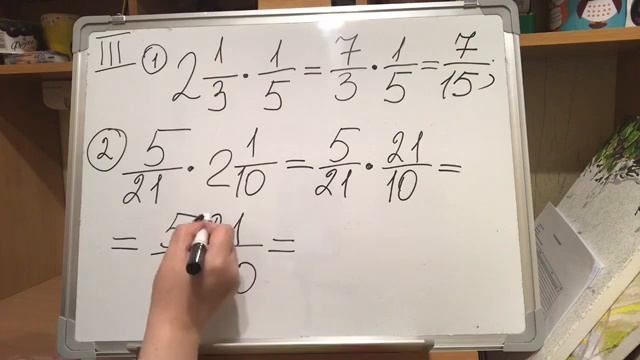 III ① 2 1/3 · 1/5 = 7/3 · 1/5 = 7/15;
② 5/21 · 2 1/10 = 5/21 · 21/10 =
= 5 21 =